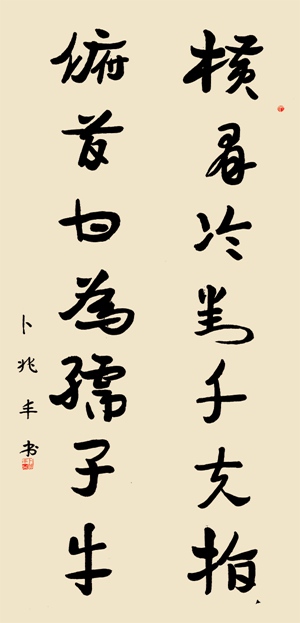 横眉冷對千夫指
俯首甘為孺子牛
卜兆丰书